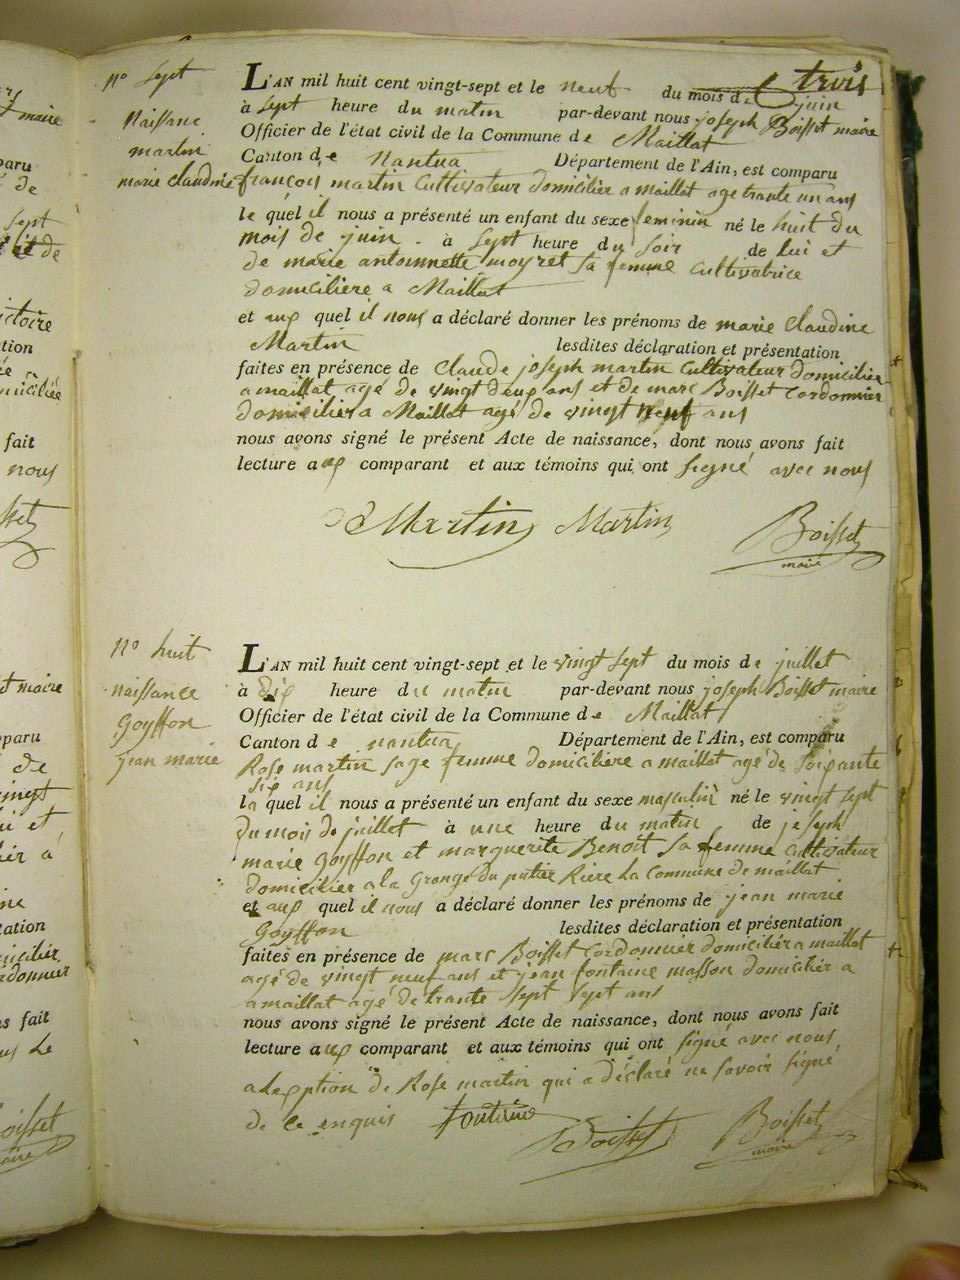 trois
n° Sept
Naissanc
martin
marie claudine
L'AN mil huit cent vingt-sept et le neuf du mois de juin
à Sept heure du matin par-devant nous joseph Boisset maire
Officier de l'état civil de la Commune de Maillat
Canton de Nantua Département de l'Ain, est comparu
françois martin Cultivateur domicilier a maillat age trante un ans
le quel il nous a présenté un enfant du sexe feminin né le huit du
mois de juin . à Sept heure du soir de Lui et
de marie antoinnette moyret sa femme Cultivatrice
domiciliere a Maillat
et aux quel il nous a déclaré donner les prénoms de marie claudine
Martin lesdites déclaration et présentation
faites en présence de Claude joseph martin Cultivateur domicilier
a maillat agé de vingt deux ans et de marc Boisset Cordonnier
domicilier a Maillat agé de vingt neuf ans
nous avons signé le présent Acte de naissance, dont nous avons fait
lecture aux comparant et aux témoins qui ont signé avec nous
Martin Martin Boisset
maire
n° huit
naissance
Goyffon
jean marie
L'AN mil huit cent vingt-sept et le vingt sept du mois de juillet
à dix heure du matin par-devant nous joseph Boisset maire
Officier de l'état civil de la Commune de Maillat
Canton de nantua Département de l'Ain, est comparu
Rose martin sage femme domiciliére a maillat agé de soixante
six ans
la quel il nous a présenté un enfant du sexe masculin né le vingt sept
du mois de juillet à une heure du matin de joseph
marie Goyffon et marguerite Benoit sa femme Cultivateur
domicilier a la Grange du putier Riere La Commune de maillat
et aux quel il nous a déclaré donner les prénoms de jean marie
Goyffon lesdites déclaration et présentation
faites en présence de marc Boisset Cordonnier domicilié a maillat
agé de vingt neuf ans et jean fontaine masson domicilier a
a maillat agé de trante sept sept ans
nous avons signé le présent Acte de naissance, dont nous avons fait
lecture aux comparant et aux témoins qui ont signé avec nous
a lexeption de Rose martin qui a déclaré ne savoir signé
de ce enquis fontaine
Boisset Boisset
maire